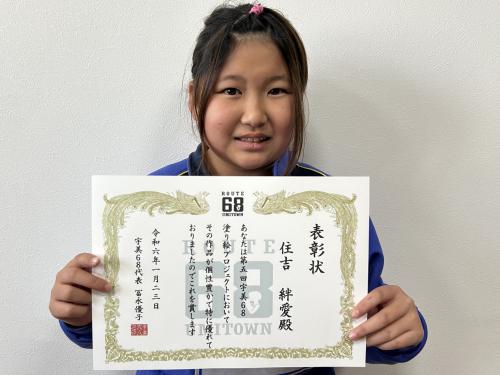 ROUTE
68
UMITOWN
表彰状
住吉 絆愛殿
あなたは第五回宇美68
塗り絵プロジェクトにおいて
その作品が個性豊かで特に優れて
おりましたのでこれを賞します
令和六年一月二三日
宇美68代表 冨永優子
ROUTE
68
UMITOWN